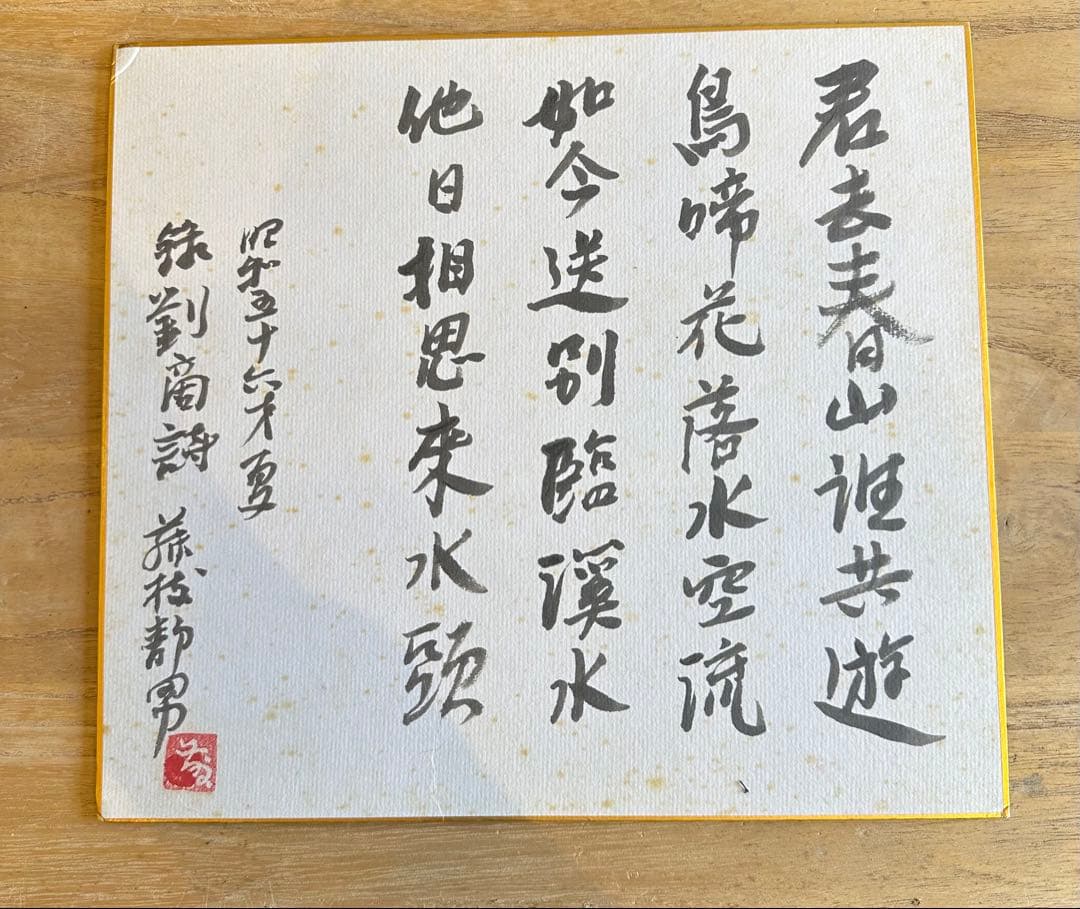 君去春山誰共遊
鳥啼花落水空流
如今送別臨溪水
他日相思來水頭
昭和五十六年夏
録劉商詩 藤枝静男